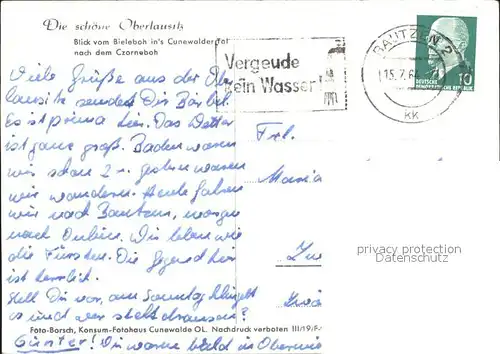 Die schöne Oberlausitz
Blick vom Bieleboh in's Cunewalder Tal
nach dem Czorneboh
Vergeude
kein Wasser!
BAUTZEN 2
15.7.64
kk
DEUTSCHE
DEMOKRATISCHE REPUBLIK
10
Viele Grüße aus der Ober
lausitz sendet Dir Bärbel.
Es ist prima hier. Das Wetter
ist ganz groß. Baden waren
wir schon 2 x. gestern waren
wir wandern. Heute fahren
wir nach Bautzen, morgen
nach Oybin. Wir leben wie
die Fürsten. Die Gegend hier
ist herrlich.
Stell Dir vor, am Sonntag klingelt
es und wer steht draussen?
Günter! Wir waren in
Frl.
Maria
privacy protection
Datenschutz
Foto-Borsch, Konsum-Fotohaus Cunewalde OL. Nachdruck verboten III/19/F